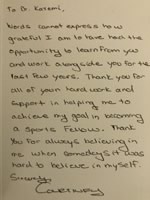 To Dr. Karemi,
Words cannot express how
grateful I am to have had the
opportunity to learn from you
and work alongside you for the
last few years. Thank you for
all of your hard work and
support in helping me to
achieve my goal in becoming
a sports Fellow. Thank
you for always believing in
me when somedays it was
hard to believe in myself.
Sincerely,